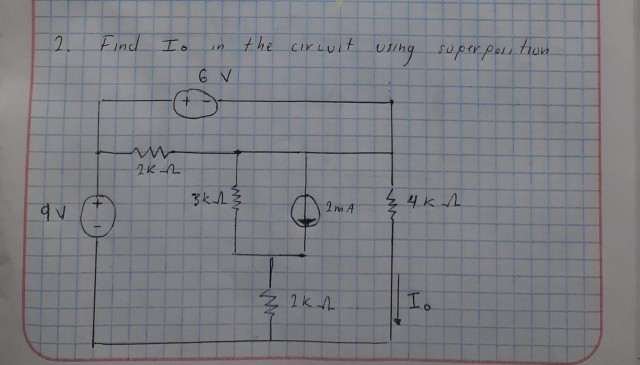 2. Find Io in the circuit using superposition
6 V
+ -
2k Ω
9V
+
-
3k Ω
2mA
4k Ω
2k Ω
Io